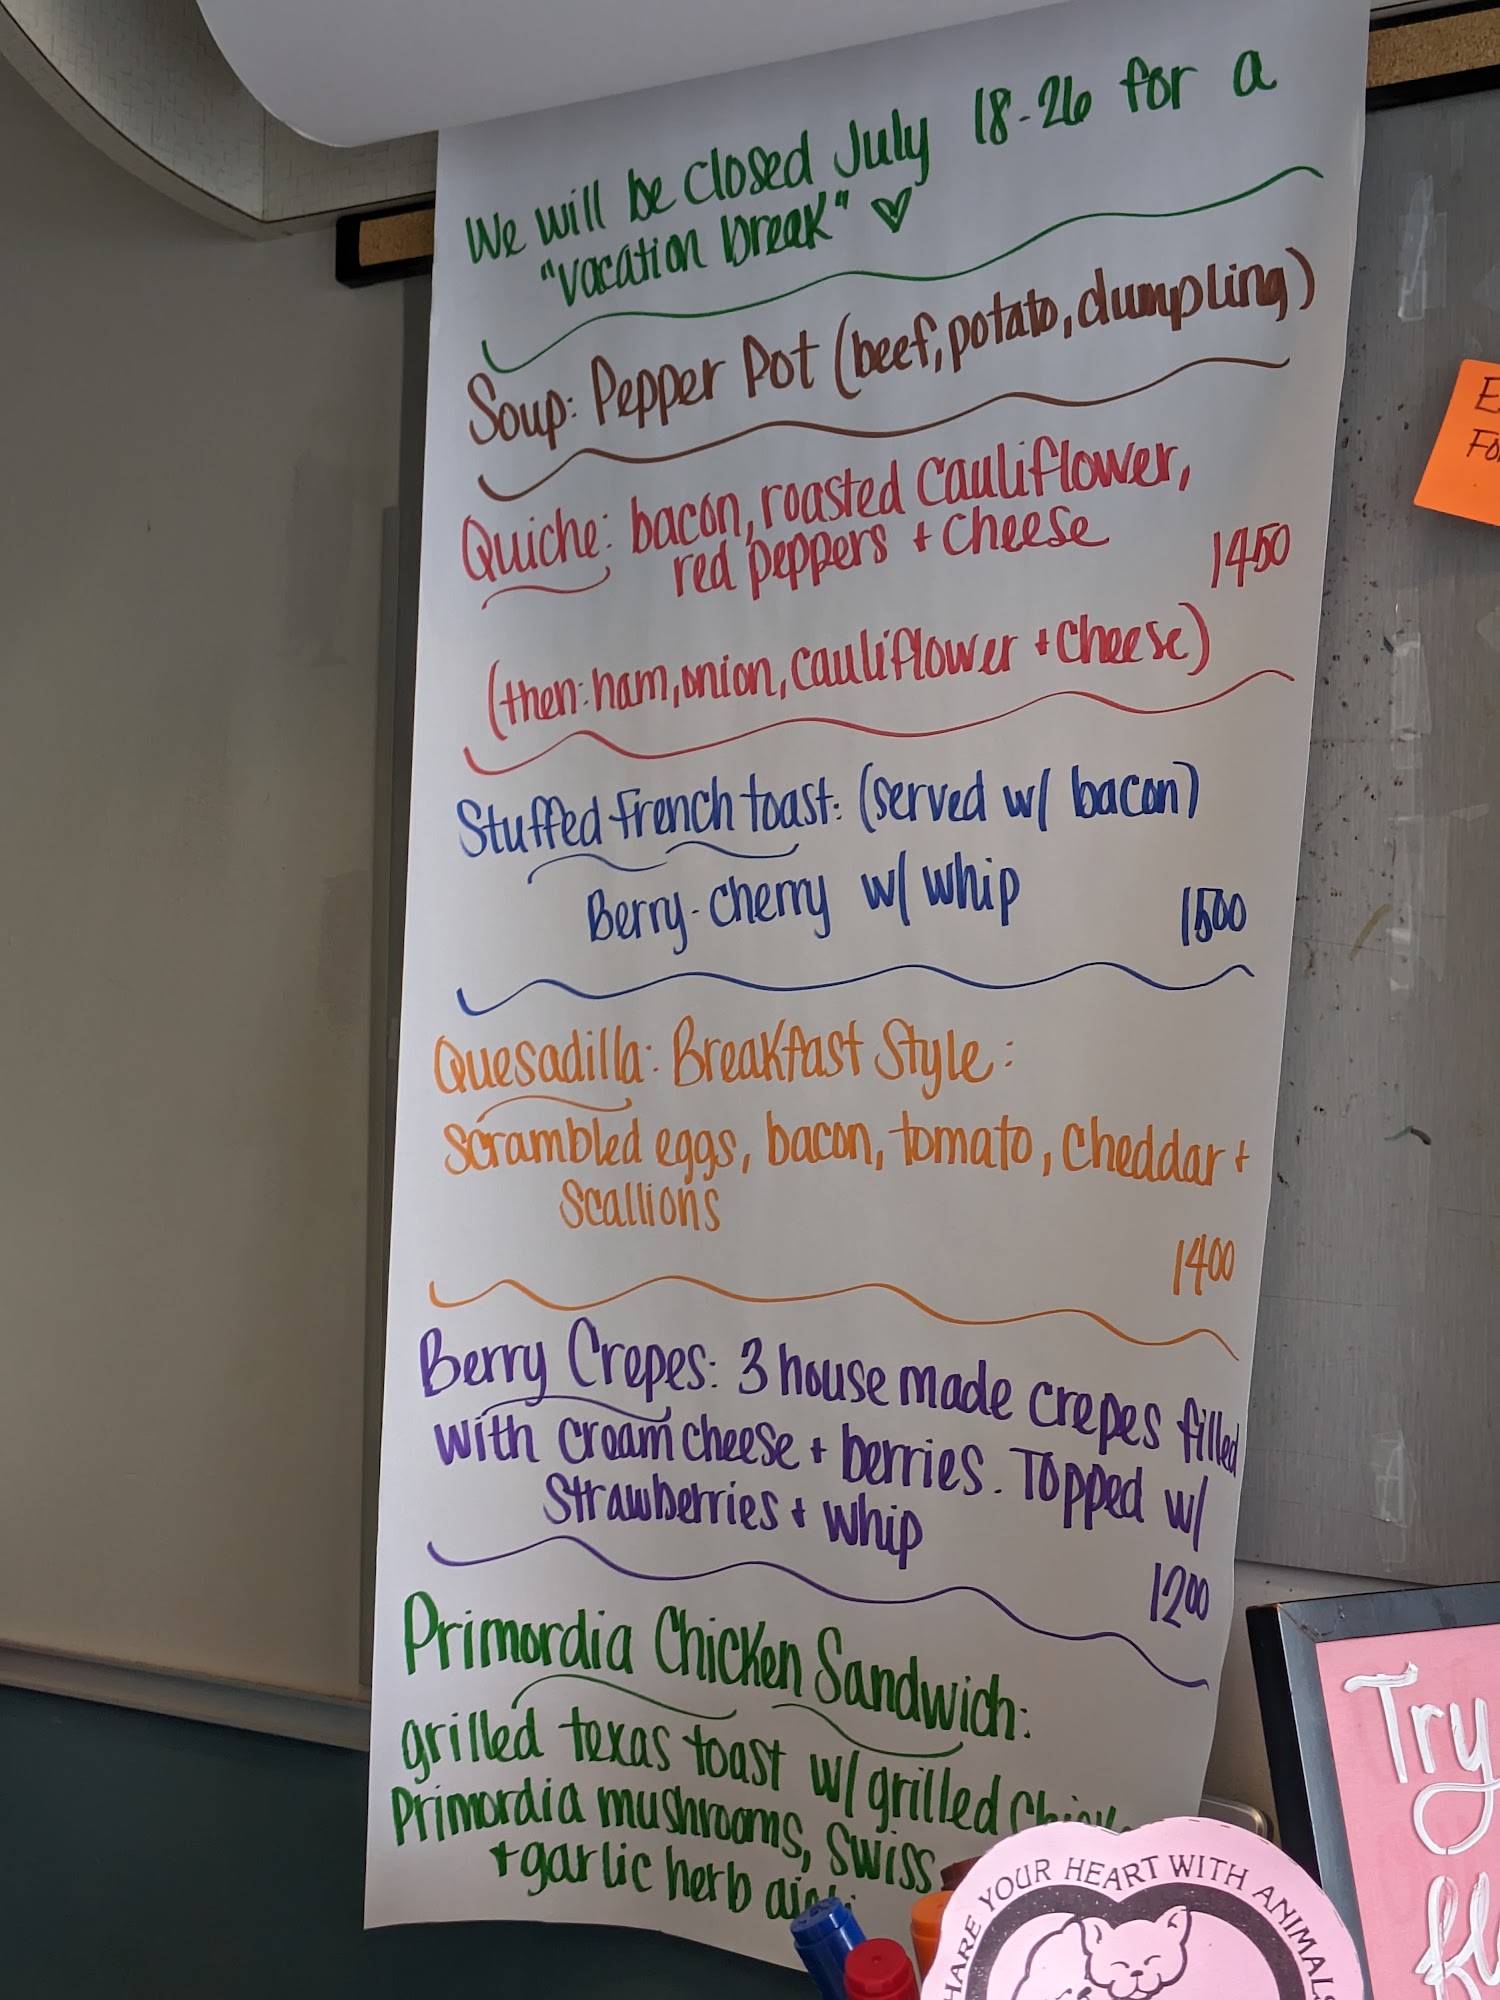 We will be closed July 18-26 for a
"vacation break" ♡
Soup: Pepper Pot (beef, potato, dumpling)
Quiche: bacon, roasted cauliflower,
red peppers + cheese
1450
(then: ham, onion, cauliflower + cheese)
Stuffed French toast: (served w/ bacon)
Berry-cherry w/ whip
1500
Quesadilla: Breakfast Style:
Scrambled eggs, bacon, tomato, cheddar +
Scallions
1400
Berry Crepes: 3 house made crepes filled
with cream cheese + berries. Topped w/
Strawberries + whip
1200
Primordia Chicken Sandwich:
grilled texas toast w/ grilled
Primordia mushrooms, Swiss
+ garlic herb
SHARE YOUR HEART WITH ANIMALS
Try